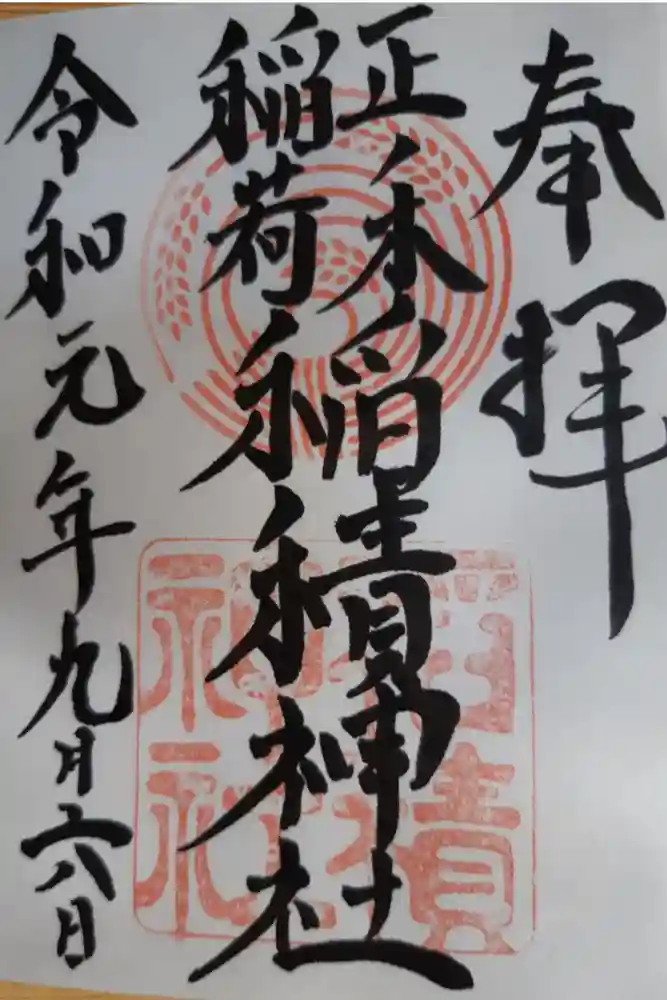 奉拝
正木
稲荷
稲積神社
令和元年九月六日
稲積
神社